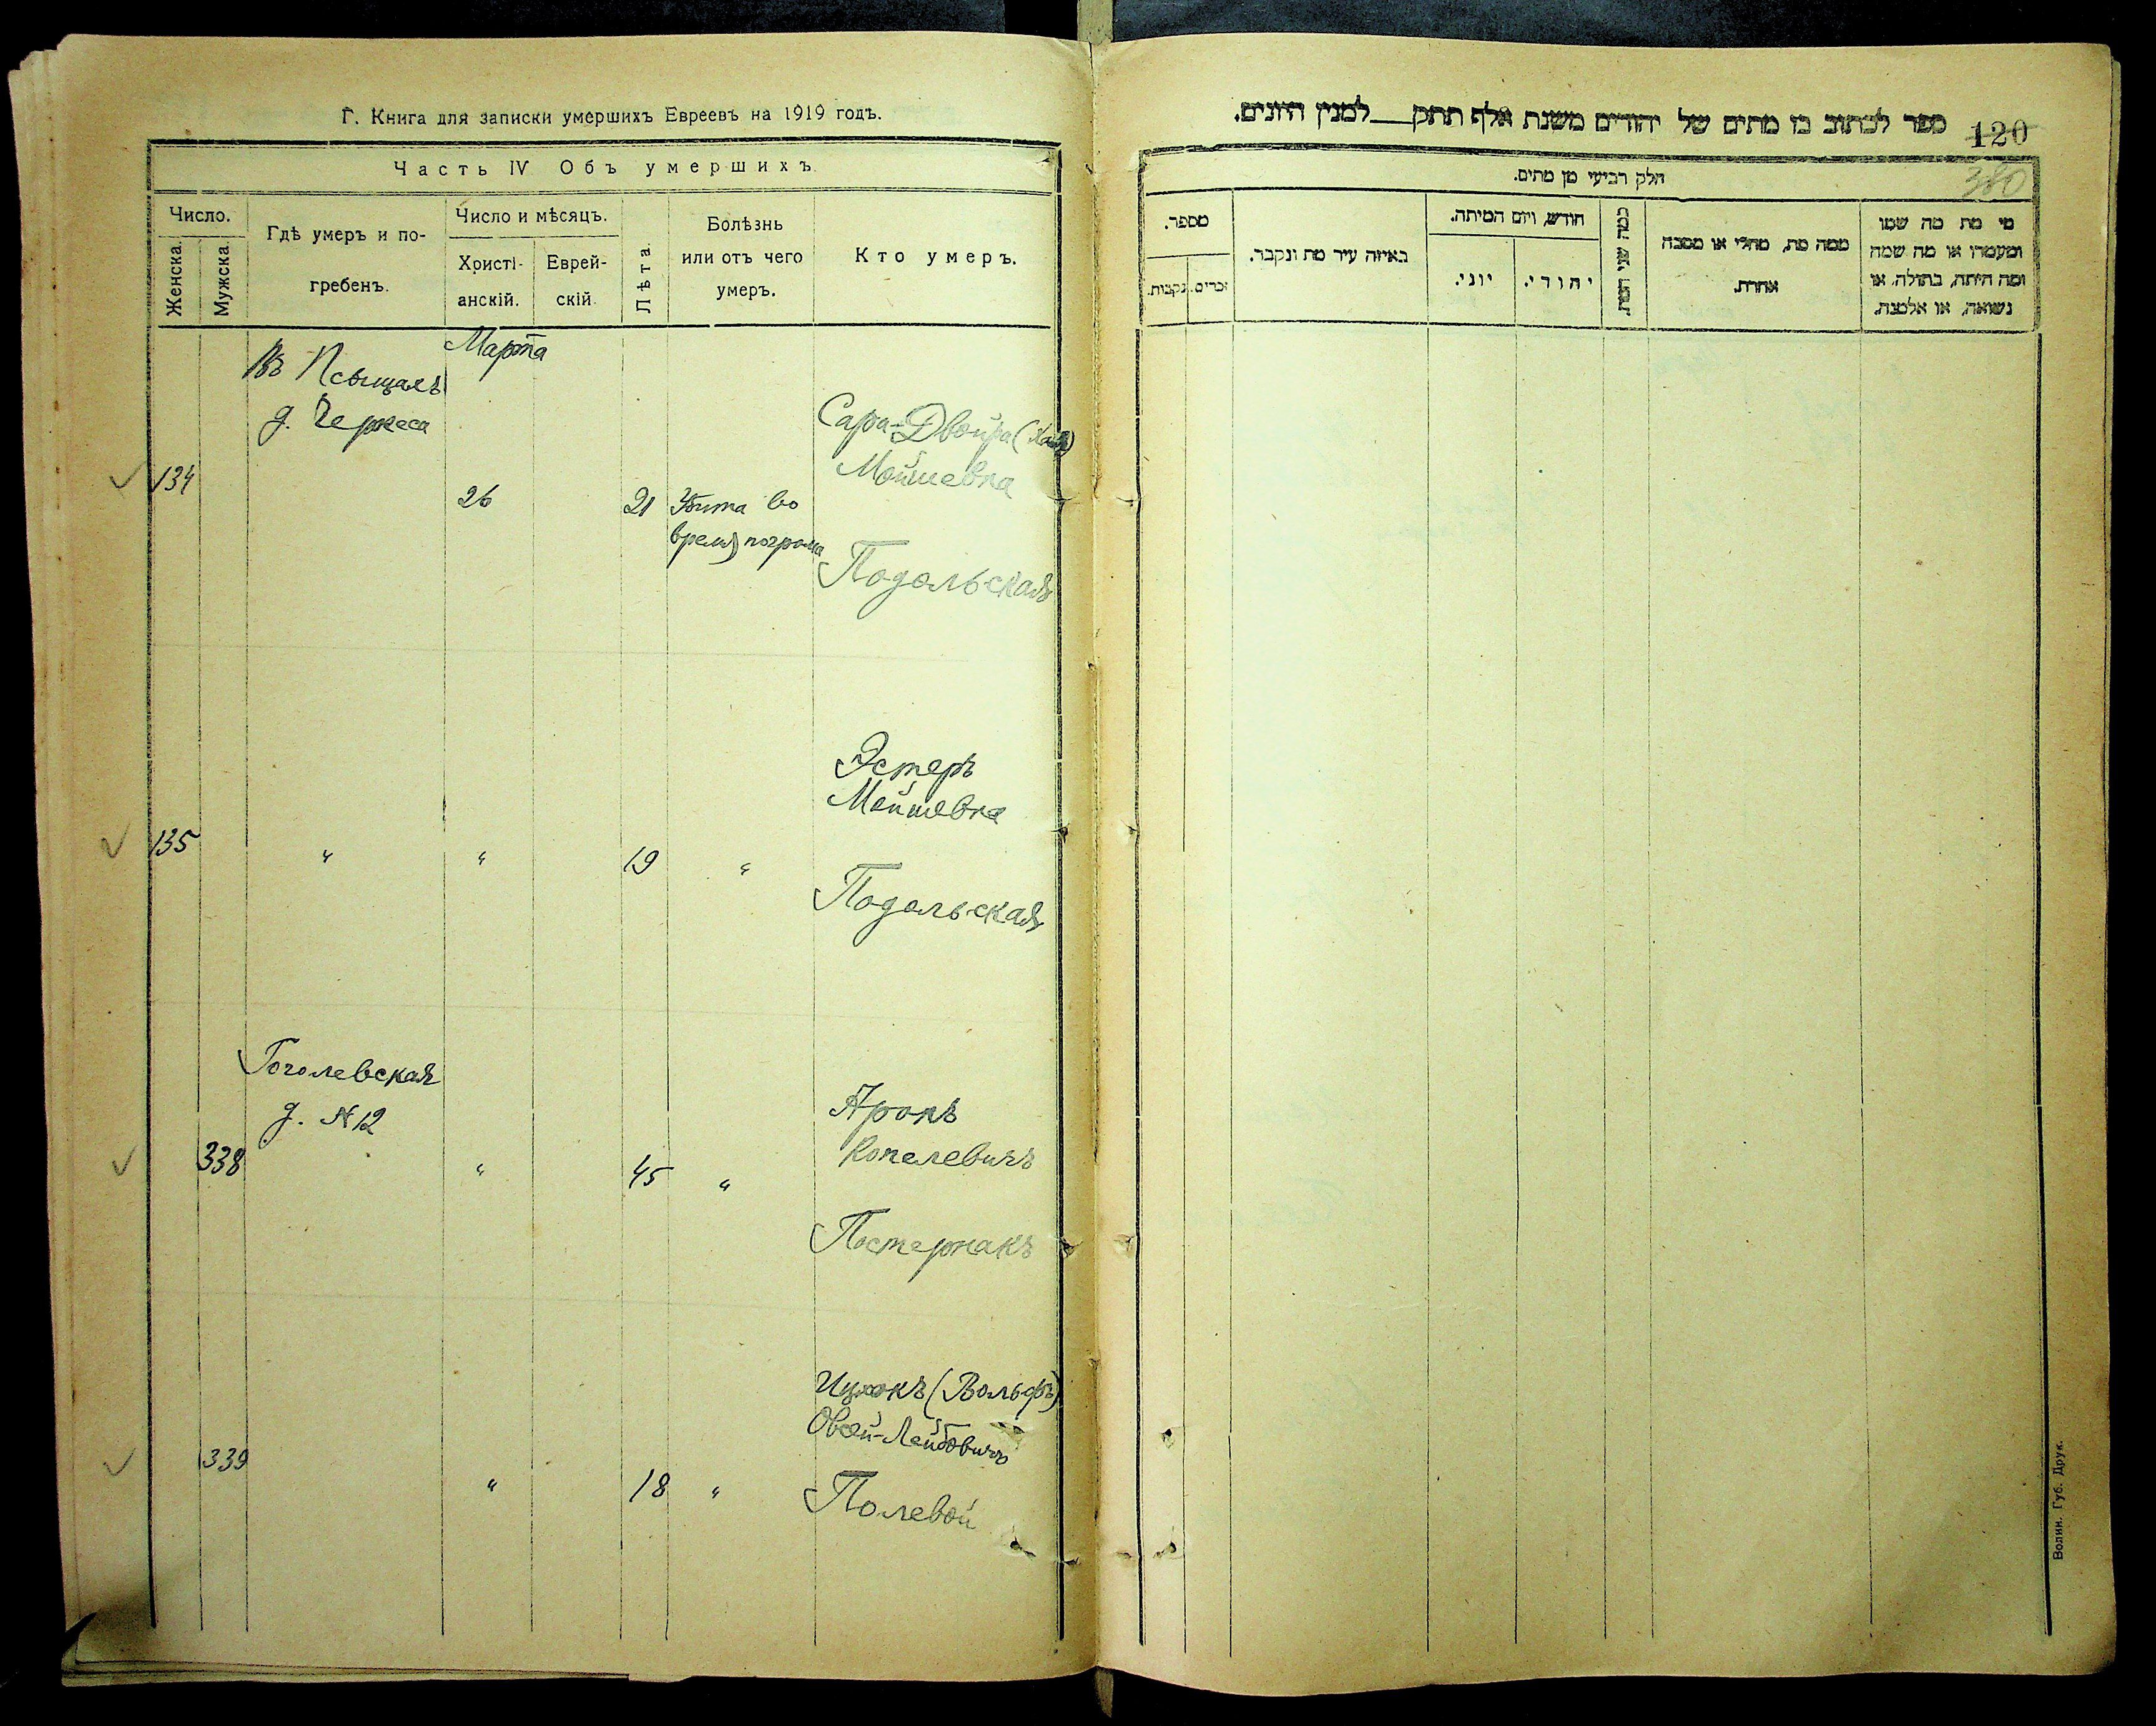 Г. Книга для записки умершихъ Евреевъ на 1919 годъ.
Часть IV Объ умершихъ
Число.
Женска.
Мужска
Гдѣ умеръ и по-
гребенъ.
Число и мѣсяцъ.
Христі-
анскій.
Еврей-
скій.
Лѣта.
Болѣзнь
или отъ чего
умеръ.
Кто умеръ.
Марта
д. Черкеса
134
26
21
Убита во
время погрома
Сара-Двойра
Мойшевна
Подольская
135
"
"
19
"
Эстеръ
Мойшевна
Подольская
Гоголевская
д. №12
338
"
45
"
Аронъ
Копелевичъ
Постернакъ
339
"
18
"
Ицхокъ (Вольфъ)
Овсей-Лейбовичъ
Полевой
ספר לכתוב בו מתים של יהודים משנת אלף תתקן למנין היונים.
120
380
חלק רביעי מן מתים.
מספר.
זכרים.
נקבות.
באיזה עיר מת ונקבר.
חודש, ויום המיתה.
יוני.
יהודי.
כמה שני המת.
ממה מת, מחלי או מסבה
אחרת.
מי מת מה שמו
ומעמדו או מה שמה
ומה היתה, בתולה, או
נשואה, או אלמנה.
Волин. Губ. Друк.